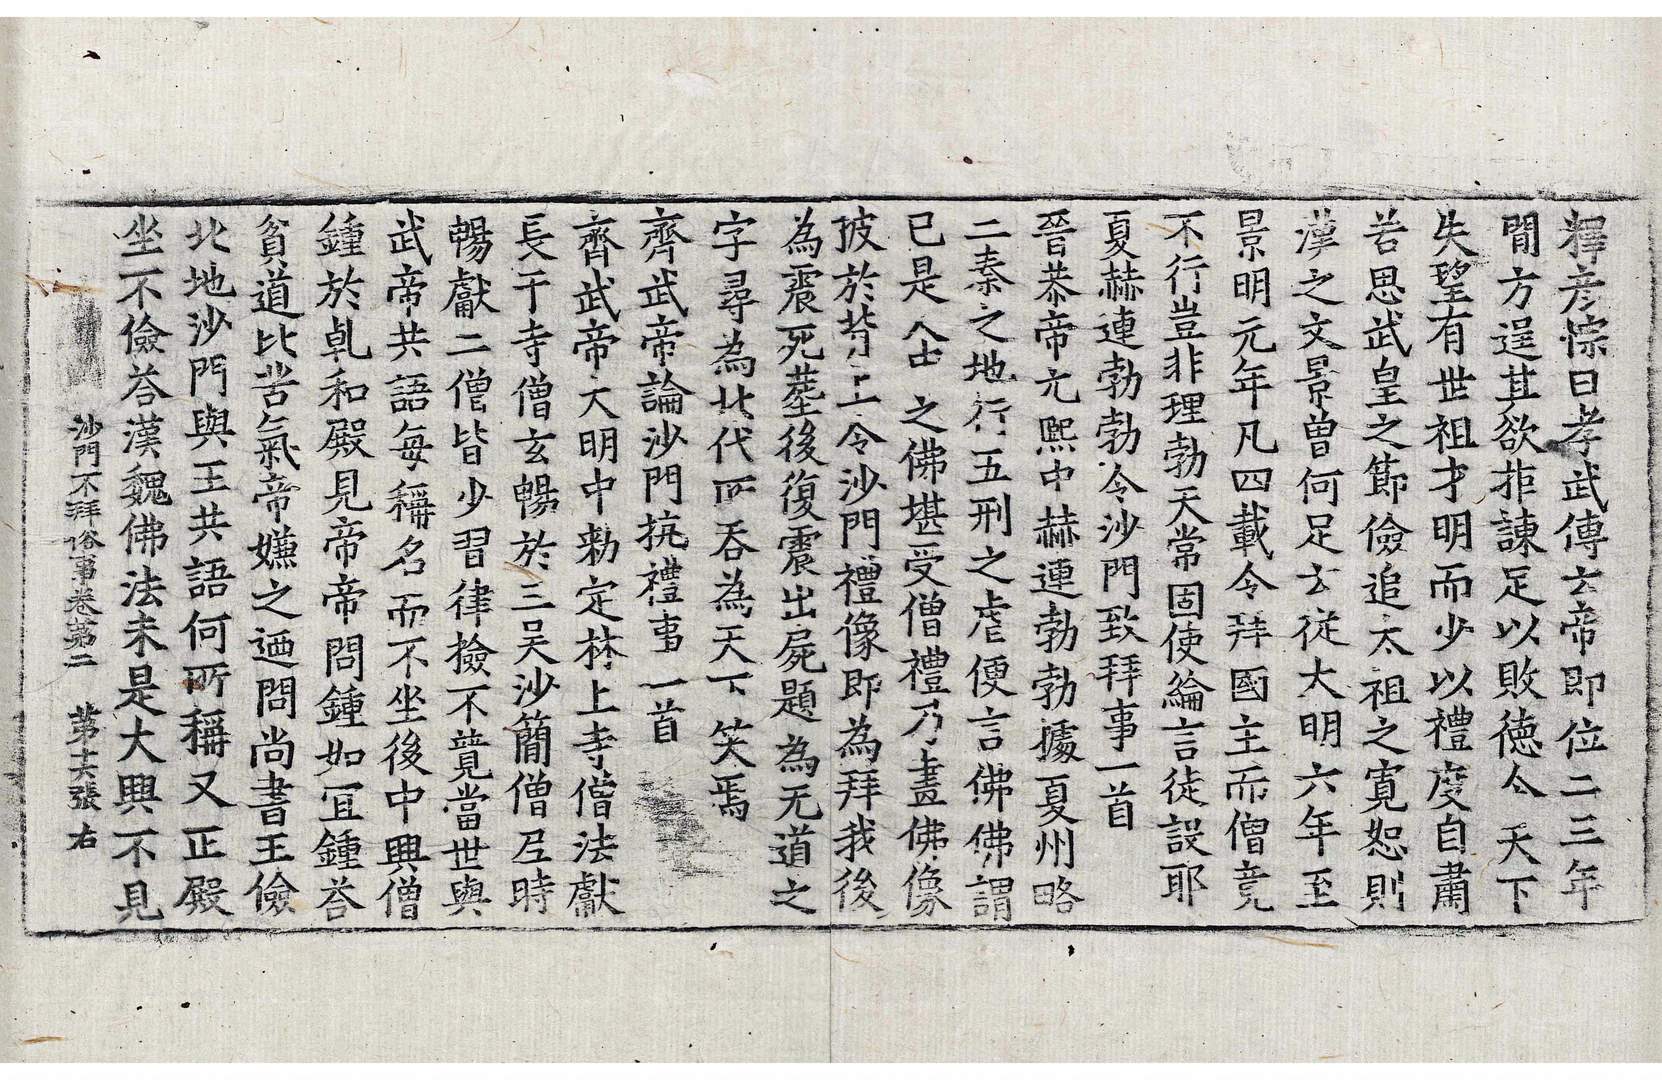 釋彦悰曰孝武傳云帝即位二三年
間方逞其欲拒諫足以敗德令天下
失望有世祖才明而少以禮度自肅
若思武皇之節儉追太祖之寬恕則
漢之文景曾何足云從大明六年至
景明元年凡四載令拜國主而僧竟
不行豈非理勃天常固使綸言徒設耶
夏赫連勃勃令沙門致拜事一首
晉恭帝元熙中赫連勃勃據夏州略
二秦之地行五刑之虐便言佛佛謂
已是人古之佛堪受僧禮乃畫佛像
披於背上令沙門禮像即為拜我後
為震死葬後復震出屍題為无道之
字尋為北代所吞為天下笑焉
齊武帝論沙門抗禮事一首
齊武帝大明中勑定林上寺僧法獻
長干寺僧玄暢於三吳沙簡僧尼時
暢獻二僧皆少習律撿不競當世與
武帝共語每稱名而不坐後中興僧
鍾於乹和殿見帝帝問鍾如冝鍾荅
貧道比苦氣帝嫌之迺問尚書王儉
北地沙門與王共語何所稱又正殿
坐不儉荅漢魏佛法未是大興不見
沙門不拜俗事卷第二　第十六張　右